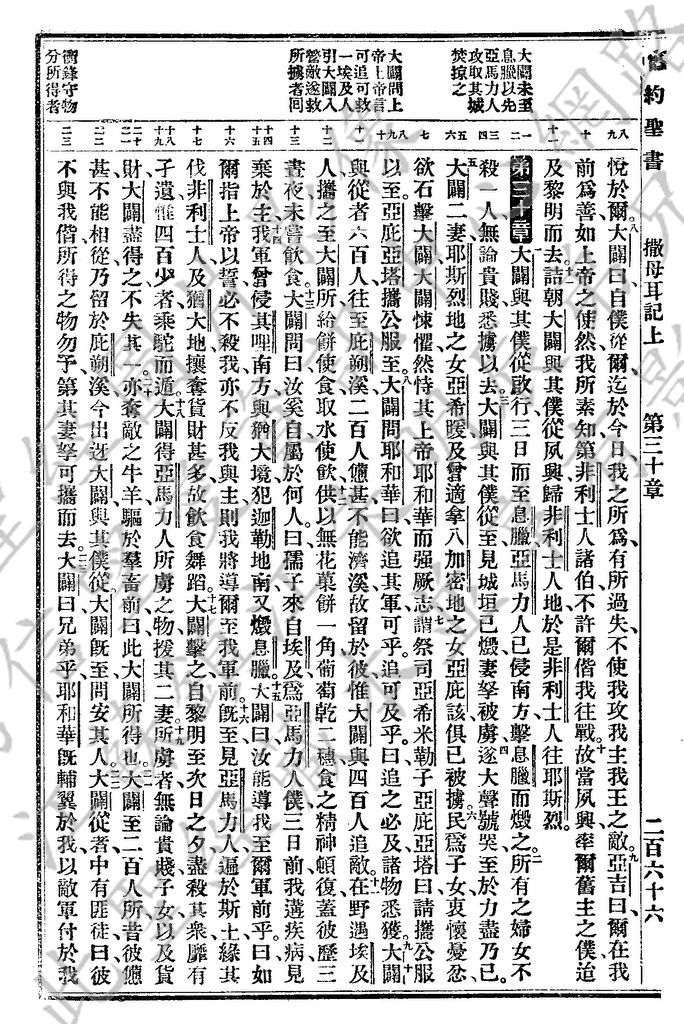 舊約聖書 撒母耳記上 第三十章 二百六十六
悅於爾大闢曰自僕從爾迄於今日我之所爲有所過失不使我攻我主我王之敵亞吉曰爾在我
前爲善如上帝之使然我所素知第非利士人諸伯不許爾偕我往戰故當夙興率爾舊主之僕迨
及黎明而去詰朝大闢與其僕從夙興歸非利士人地於是非利士人往耶斯烈
第三十章 大闢與其僕從啟行三日而至息臘亞馬力人已侵南方擊息臘而燬之所有之婦女不
殺一人無論貴賤悉擄以去大闢與其僕從至見城垣已燬妻孥被虜遂大聲號哭至於力盡乃已
大闢二妻耶斯烈地之女亞希暖及曾適拿八加密地之女亞庇該俱已被擄民爲子女衷懷憂忿
欲石擊大闢大闢悚懼然恃其上帝耶和華而强厥志謂祭司亞希米勒子亞庇亞塔曰請攜公服
以至亞庇亞塔攜公服至大闢問耶和華曰欲追其軍可乎追可及乎曰追之必及諸物悉獲大闢
與從者六百人往至庇朔溪二百人憊甚不能濟溪故留於彼惟大闢與四百人追敵在野遇埃及
人攜之至大闢所給餅使食取水使飲供以無花菓餅一角葡萄乾二穗食之精神頓復蓋彼歷三
晝夜未嘗飲食大闢問曰汝奚自屬於何人曰孺子來自埃及爲亞馬力人僕三日前我遘疾病見
棄於主我軍曾侵其哩南方與猶大境犯迦勒地南又燬息臘大闢曰汝能導我至爾軍前乎曰如
爾指上帝以誓必不殺我亦不反我與主則我將導爾至我軍前旣至見亞馬力人遍於斯土緣其
伐非利士人及猶大地攘奪貨財甚多故飲食舞蹈大闢擊之自黎明至次日之夕盡殺其衆靡有
孑遺惟四百少者乘駝而遁大闢得亞馬力人所虜之物拨其二妻所虜者無論貴賤子女以及貨
財大闢盡得之不失其一亦奪敵之牛羊驅於羣畜前曰此大闢所得也大闢至二百人所昔彼憊
甚不能相從乃留於庇朔溪今出迓大闢與其僕從大闢旣至問安其人大闢從者中有匪徒曰彼
不與我偕所得之物勿予第其妻孥可攜而去大闢曰兄弟乎耶和華旣輔翼於我以敵軍付於我
大闢未至
息臘以先
亞馬力人
攻取其城
焚掠之
大闢問上
帝上帝言
可追可救
一埃及人
引大闢入
營敵遂救
所擄者回
衝鋒守物
分所得者